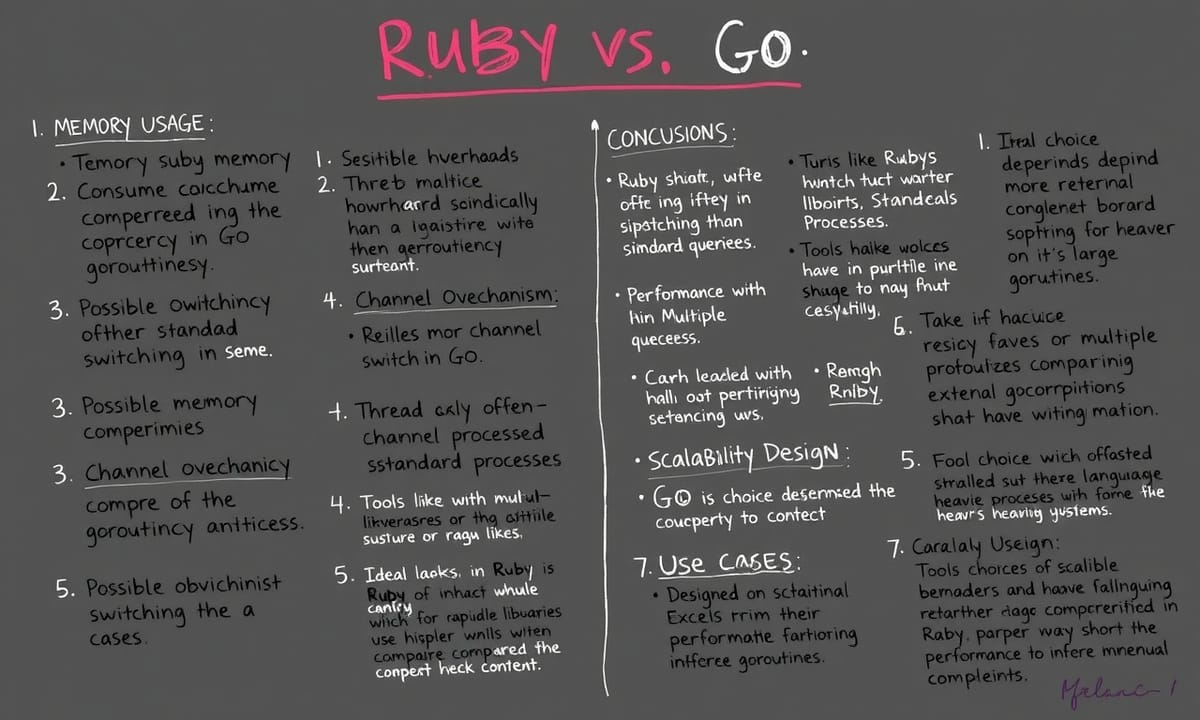 RUBY VS. GO.
1. MEMORY USAGE:
• Temory suby memory
2. Consume caicchume
comperreed ing the
coprcercy in GO
gorouttinesy.
3. Possible owitchincy
ofther standad
switching in seme.
3. Possible memory
comperimies
3. Channel ovechanicy
compre of the
goroutincy antticess.
5. Possible obvichinist
switching the a
cases.
1. Sesitible hverhoads
2. Threb maltice
howrhard scindically
han a lgaistire wite
then gerroutiency
surteant.
4. Channel Ovechanism:
• Reilles mor channel
switch in GO.
4. Thread axly offen-
channel processed
sstandard processes
4. Tools like with mulul-
likverasres or thg
susture or ragu likes.
5. Ideal laoks, in Ruby is
Ruby of inhact whule
canky
which for rapidle libuaries
use hispler wnlls witen
compaire compared the
conpest heck content.
CONCUSIONS:
• Ruby shiatr, wfte
offc ing iftey in
sipatching than
simdard queriees.
• Performance with
hin Multiple
queceess.
• Carh leaded with
halli oot pertirigny
setancing uvs.
• Turis like Rubys
hwntch tuct warter
llboirts, Standcals
Processes.
• Tools halke wolces
have in purltile ine
shuge to nay fhut
• Remgh
Rniby.
• SCALABILITY DESIGN:
• GO is choice desermsed the
coucperty to contect
7. USE CASES:
• Designed on sctaitinal
Excels rrim their
performatie fartioring
infferee goroutines.
1. Itral choice
deperinds depind
more reterinal
conglenet borard
sopttring for heaver
on it's large
gorutines.
6. Take iif hacuice
resicy faves or multiple
protoulzes comparinig
extenal gocorrpitions
shat have witing mation.
5. Fool choice wich offasted
stralled sut there language
heavie proceses with forne the
heavrs hearity yustems.
7. Caralaly Useign:
Tools choices of scalible
bemaders and haave fallnguing
retarther dage compcrerified in
Raby, parper way short the
performance to infere mnenual
compleints.